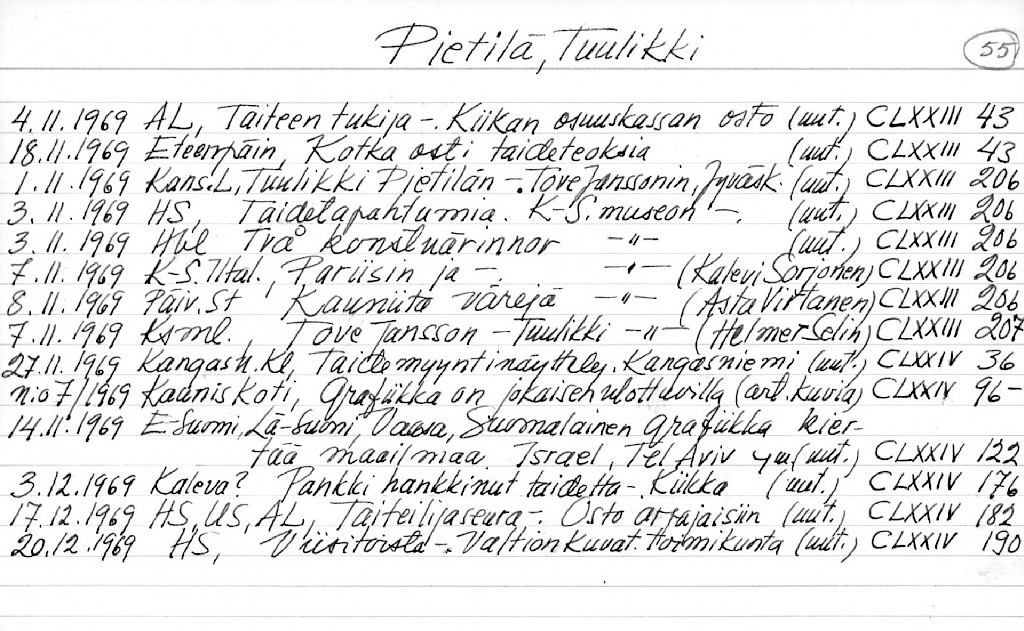 Pietilä, Tuulikki 55
4.11.1969 AL, Taiteen tukija -. Kiikan osuuskassan osto (uut.) CLXXIII 43
18.11.1969 Eteenpäin, Kotka osti taideteoksia (uut.) CLXXIII 43
1.11.1969 Kans.L, Tuulikki Pietilän -. Tove Janssonin, Jyväsk. (uut.) CLXXIII 206
3.11.1969 HS, Taidetapahtumia. K-S. museon -. (uut.) CLXXIII 206
3.11.1969 Hbl Två konstnärinnor -"- (uut.) CLXXIII 206
7.11.1969 K-S. Iltal., Pariisin ja -. -"- (Kalevi Sorjonen) CLXXIII 206
8.11.1969 Päiv.St Kauniita värejä -"- (Asta Virtanen) CLXXIII 206
7.11.1969 Ksml. Tove Jansson - Tuulikki -"- (Helmer Selin) CLXXIII 207
27.11.1969 Kangash. Kl, Taidemyyntinäyttely, Kangasniemi (uut.) CLXXIV 36
n:o 7/1969 Kaunis Koti, Grafiikka on jokaisen ulottuvilla (art. kuvia) CLXXIV 96-
14.11.1969 E-Suomi, Lä-Suomi, Vaasa, Suomalainen grafiikka kier-
tää maailmaa. Israel, Tel Aviv ym (uut.) CLXXIV 122
3.12.1969 Kaleva? Pankki hankkinut taidetta -. Kiikka (uut.) CLXXIV 176
17.12.1969 HS, US, AL, Taiteilijaseura -. Osto arpajaisiin (uut.) CLXXIV 182
20.12.1969 HS, Viisitoista -. Valtion Kuvat. toimikunta (uut.) CLXXIV 190